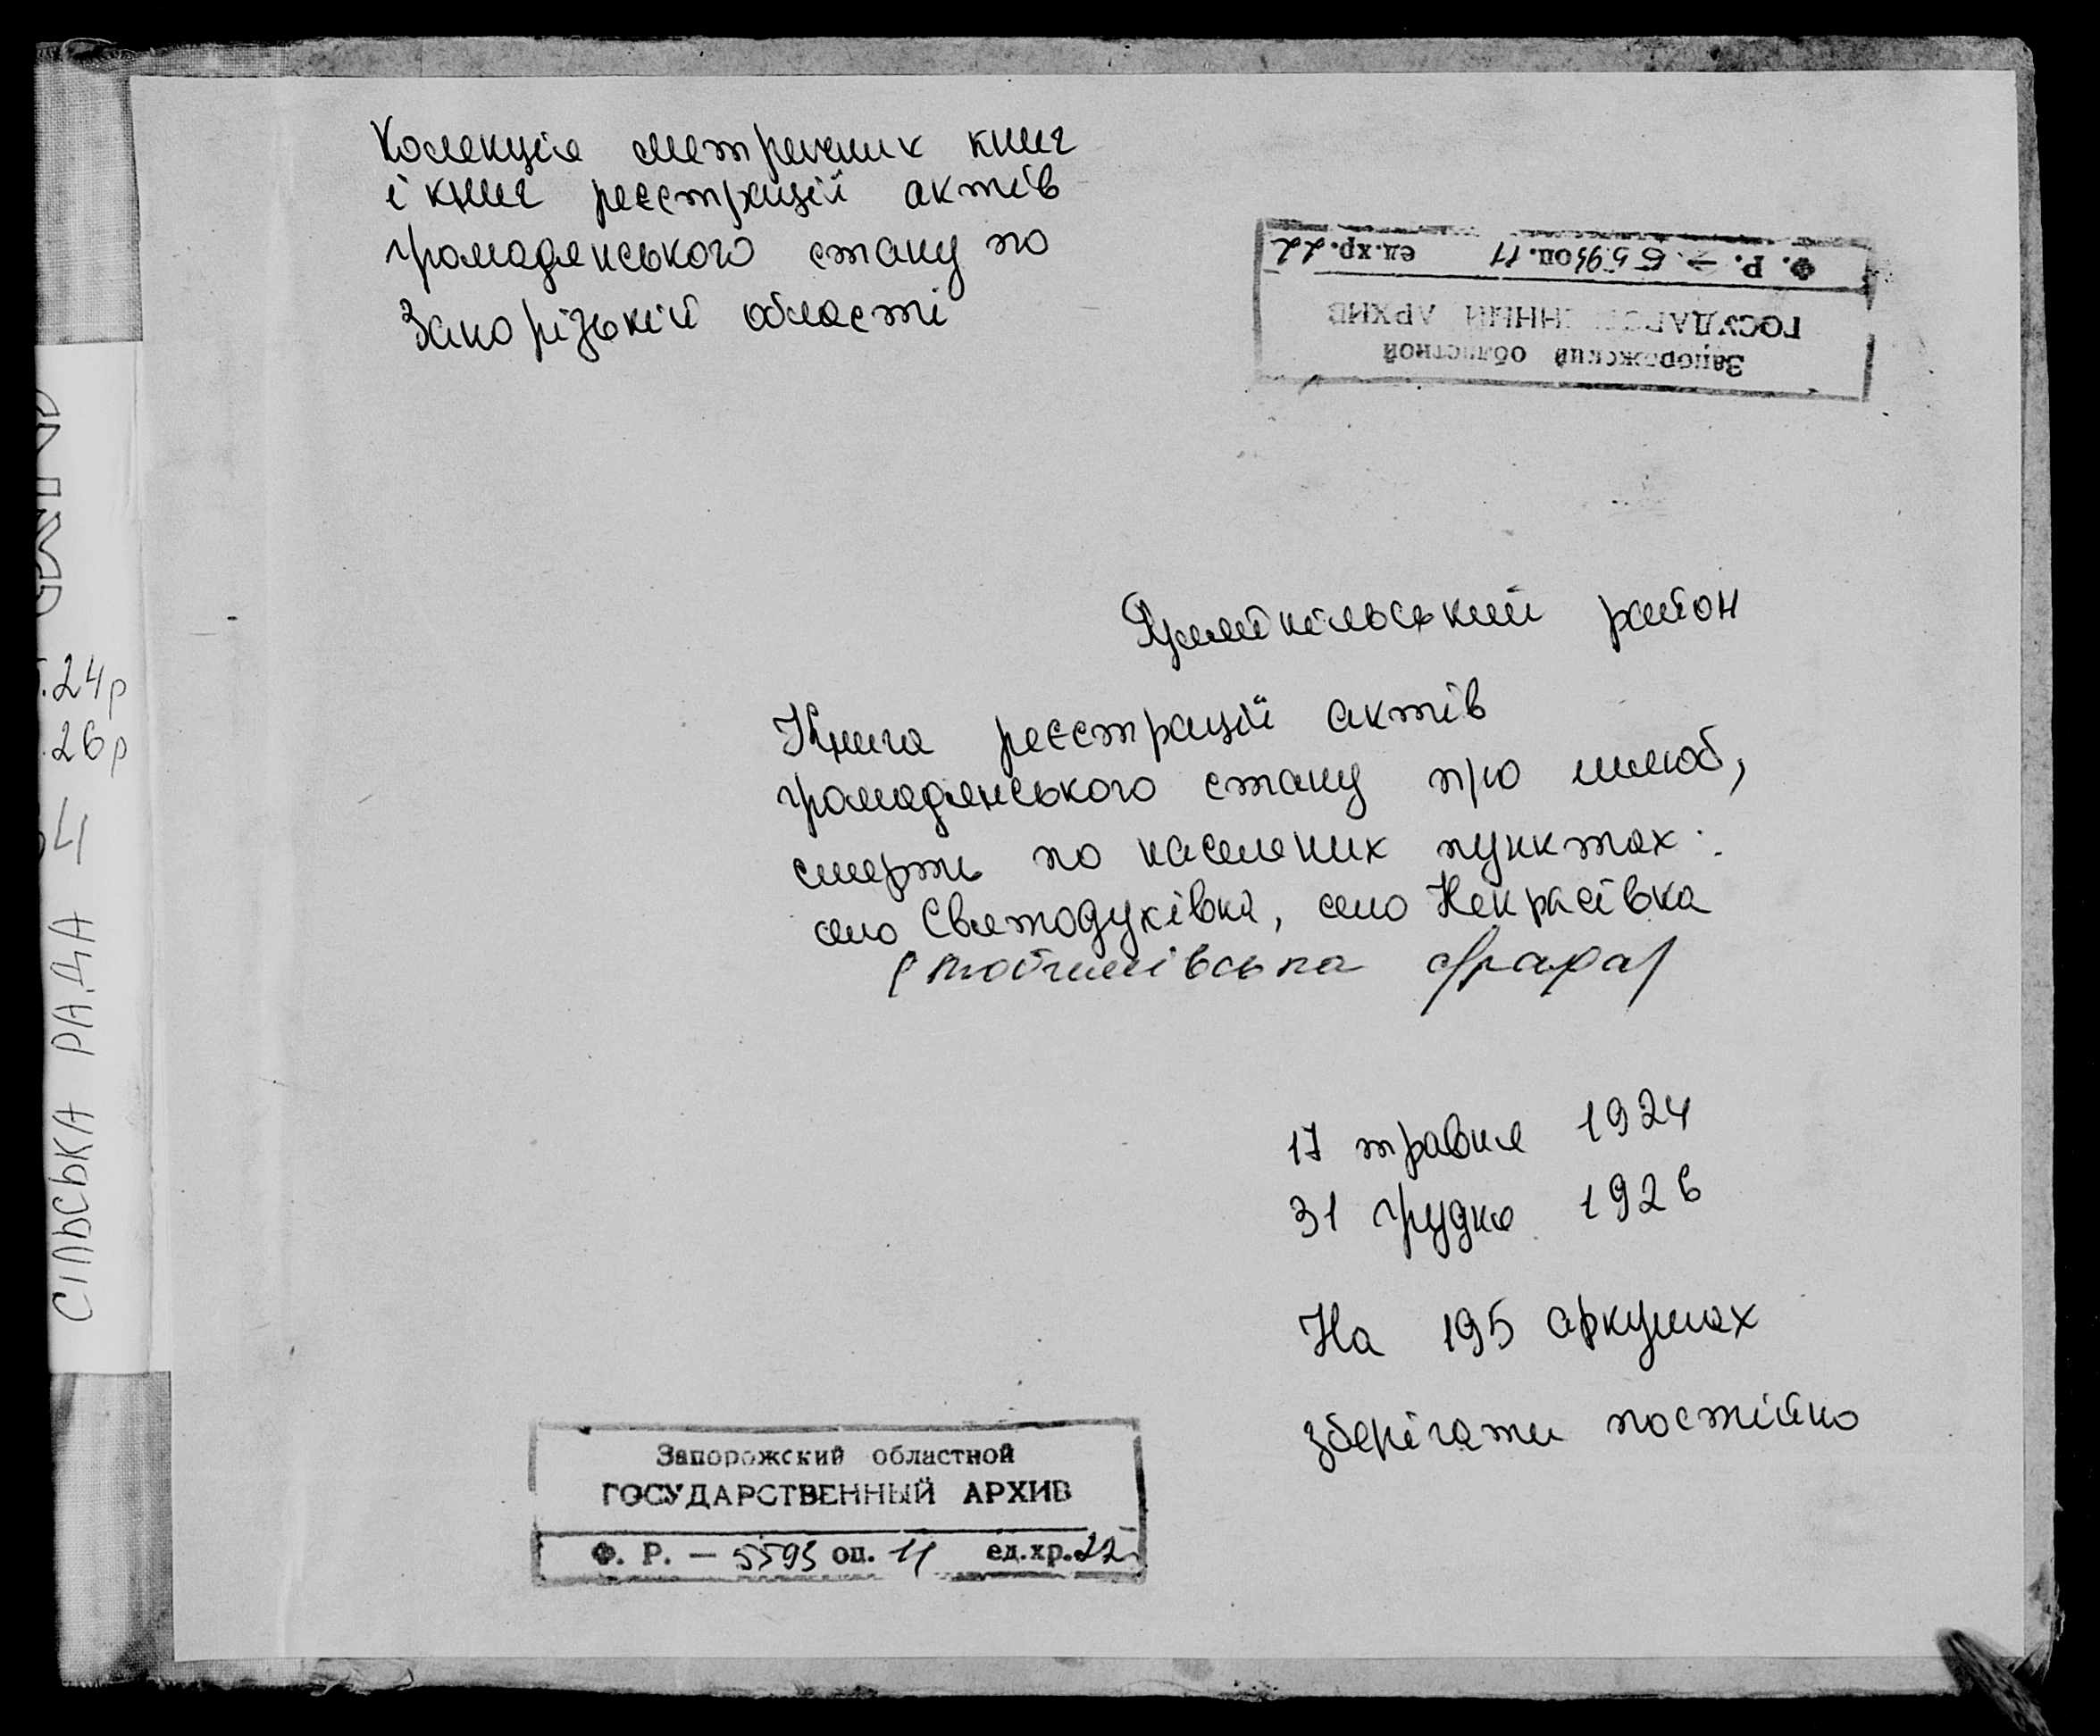 Колекція метричних книг
і книг реєстрацій актів
громадянського стану по
Запорізькій області
Ф. Р. – 5593 оп. 11 ед.хр. 22
ГОСУДАРСТВЕННЫЙ АРХИВ
Запорожский областной
Гуляйпільський район
Книга реєстрацій актів
громадянського стану про шлюб,
смерть по населених пунктах:
село Святодухівка, село Некрасівка
графа
17 травня 1924
31 грудня 1926
На 195 аркушах
зберігати постійно
Запорожский областной
ГОСУДАРСТВЕННЫЙ АРХИВ
Ф. Р. – 5593 оп. 11 ед.хр. 22
.24р
.26р
СІЛЬСЬКА РАДА